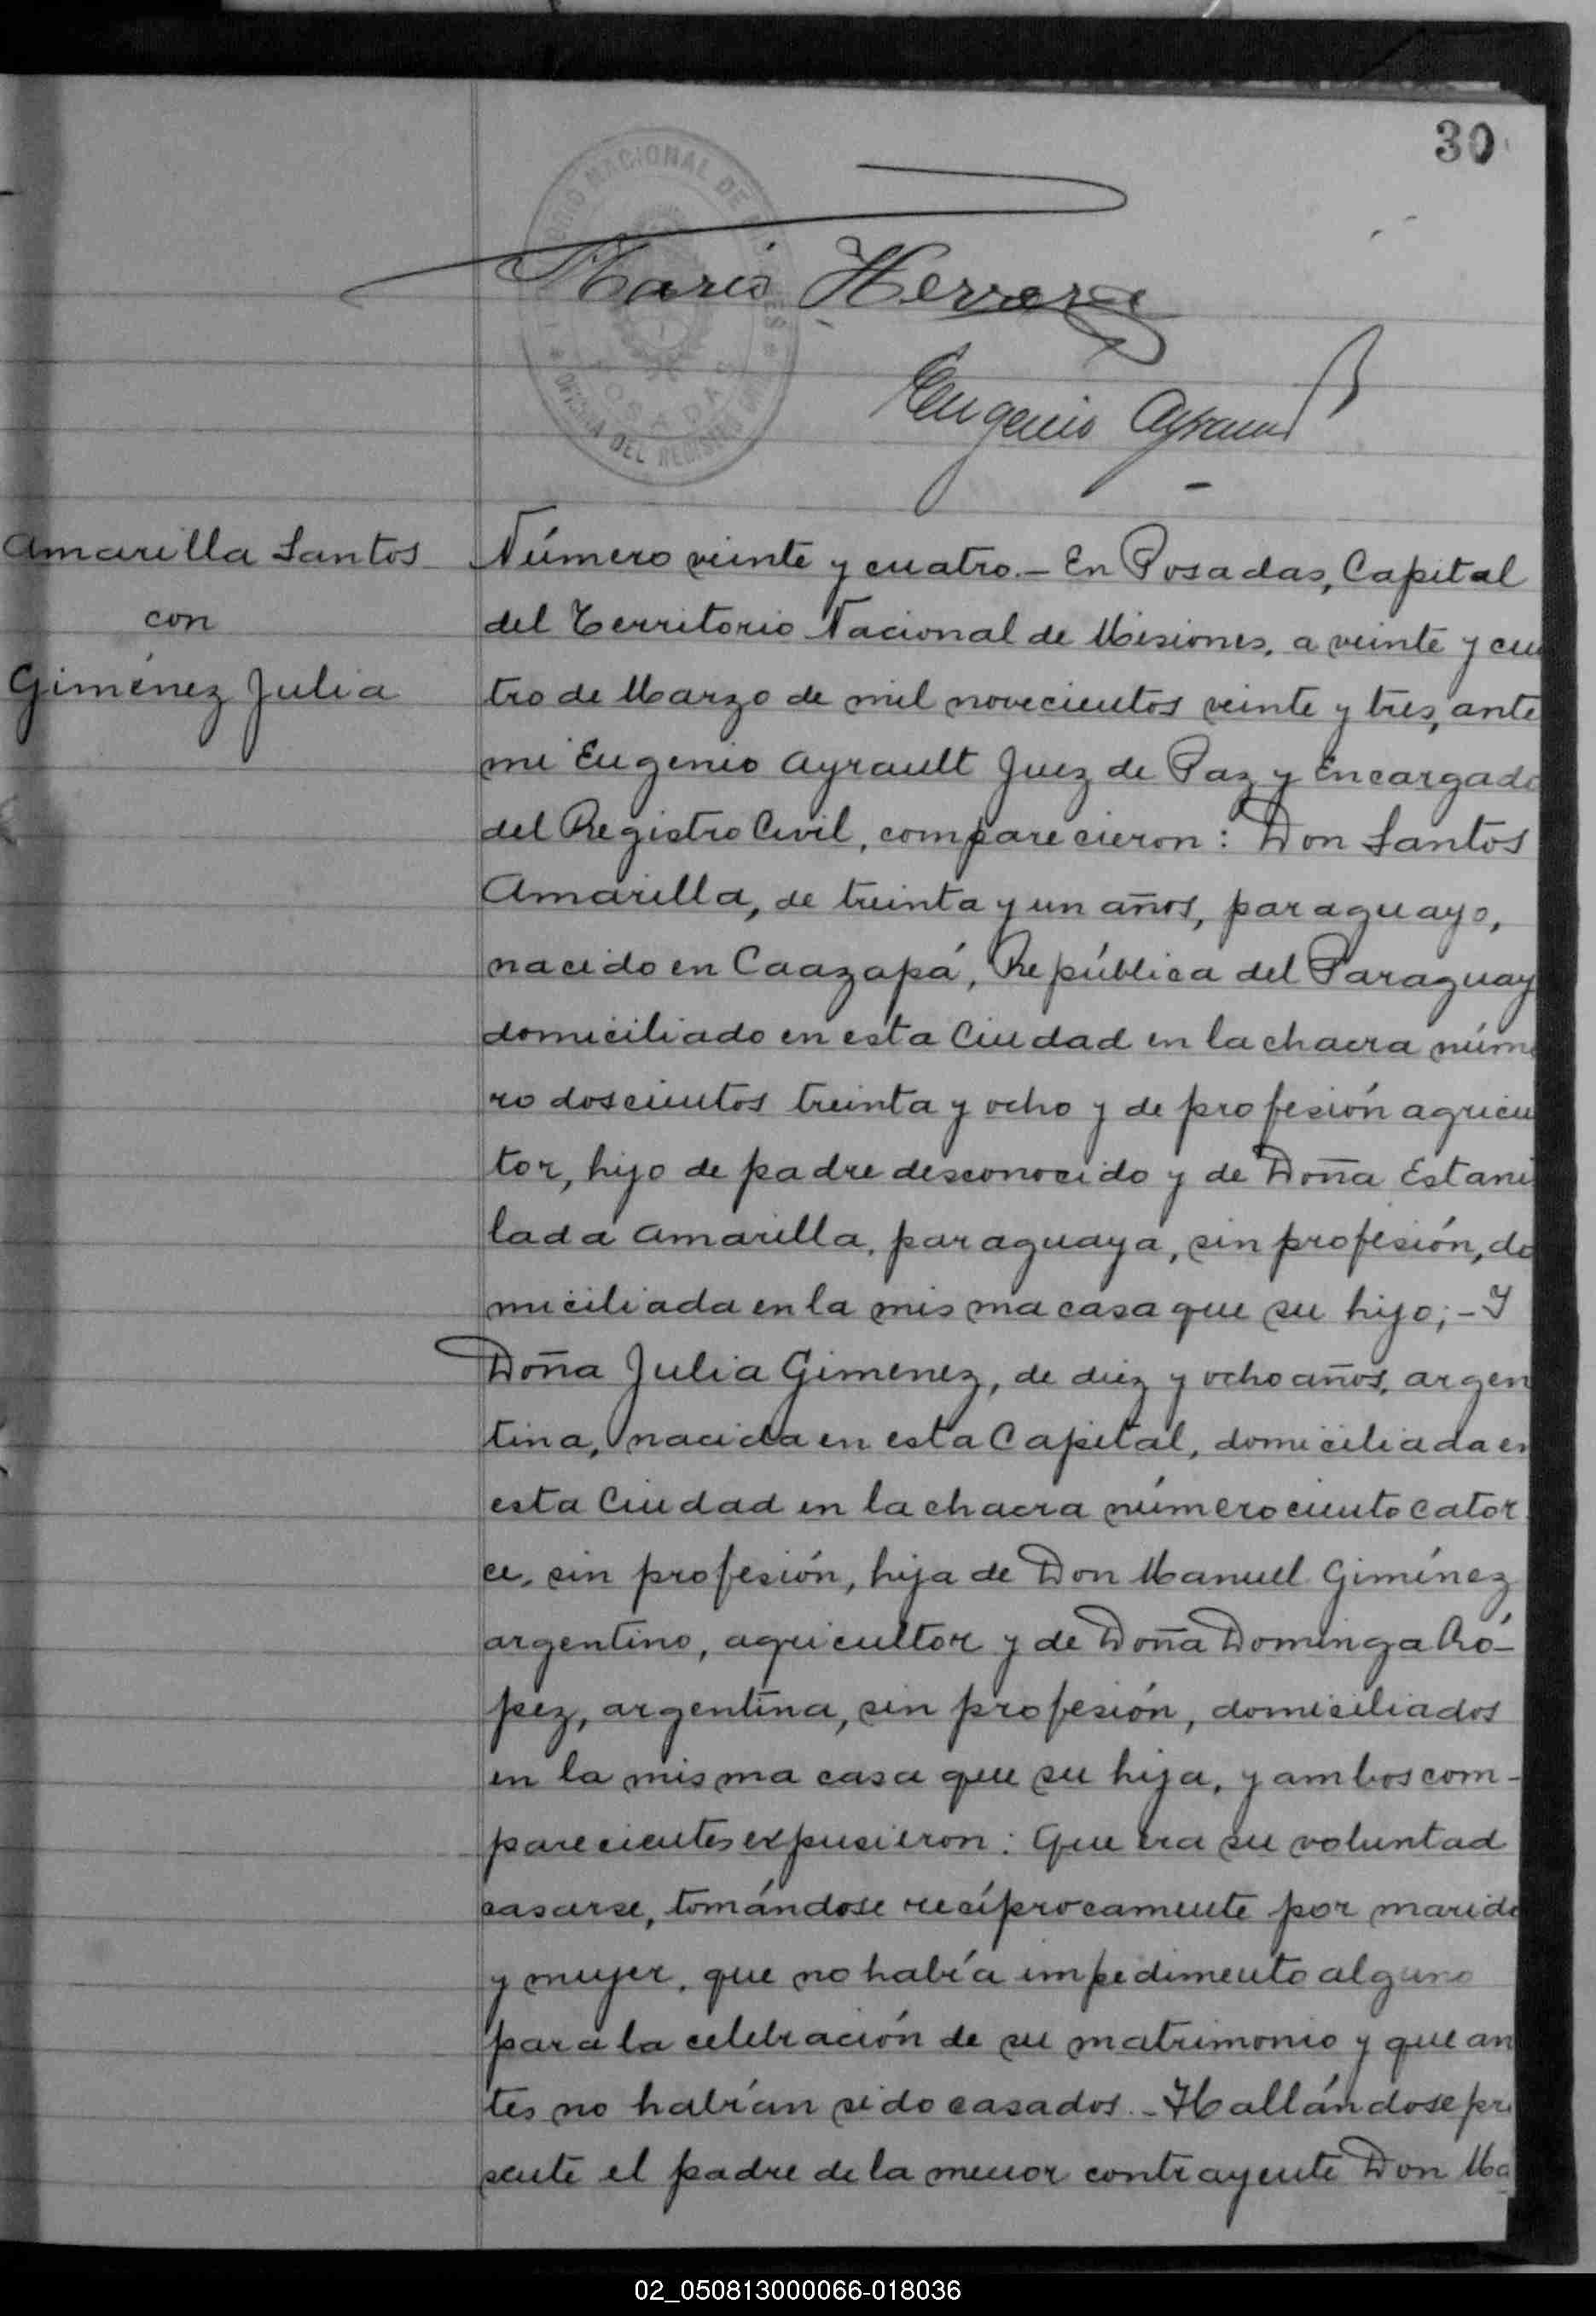 30
TERRITORIO NACIONAL DE MISIONES
POSADAS
OFICINA DEL REGISTRO CIVIL
Mario Herrera
Eugenio Ayrault
Amarilla Santos
con
Giménez Julia
Número veinte y cuatro.- En Posadas, Capital
del Territorio Nacional de Misiones, a veinte y cua
tro de Marzo de mil novecientos veinte y tres, ante
mi Eugenio Ayrault Juez de Paz y Encargado
del Registro Civil, comparecieron: Don Santos
Amarilla, de treinta y un años, paraguayo,
nacido en Caazapá, República del Paraguay
domiciliado en esta Ciudad en la chacra núme
ro doscientos treinta y ocho y de profesión agricul
tor, hijo de padre desconocido y de Doña Estani
lada Amarilla, paraguaya, sin profesión, do
miciliada en la misma casa que su hijo;- Y
Doña Julia Gimenez, de diez y ocho años, argen
tina, nacida en esta Capital, domiciliada en
esta Ciudad en la chacra número ciento cator
ce, sin profesión, hija de Don Manuel Giménez
argentino, agricultor y de Doña Dominga Ró-
pez, argentina, sin profesión, domiciliados
en la misma casa que su hija, y ambos com-
parecientes expusieron: Que era su voluntad
casarse, tomándose recíprocamente por marido
y mujer, que no había impedimento alguno
para la celebración de su matrimonio y que an
tes no habían sido casados.- Hallándose pre
sente el padre de la menor contrayente Don Ma
02_050813000066-018036